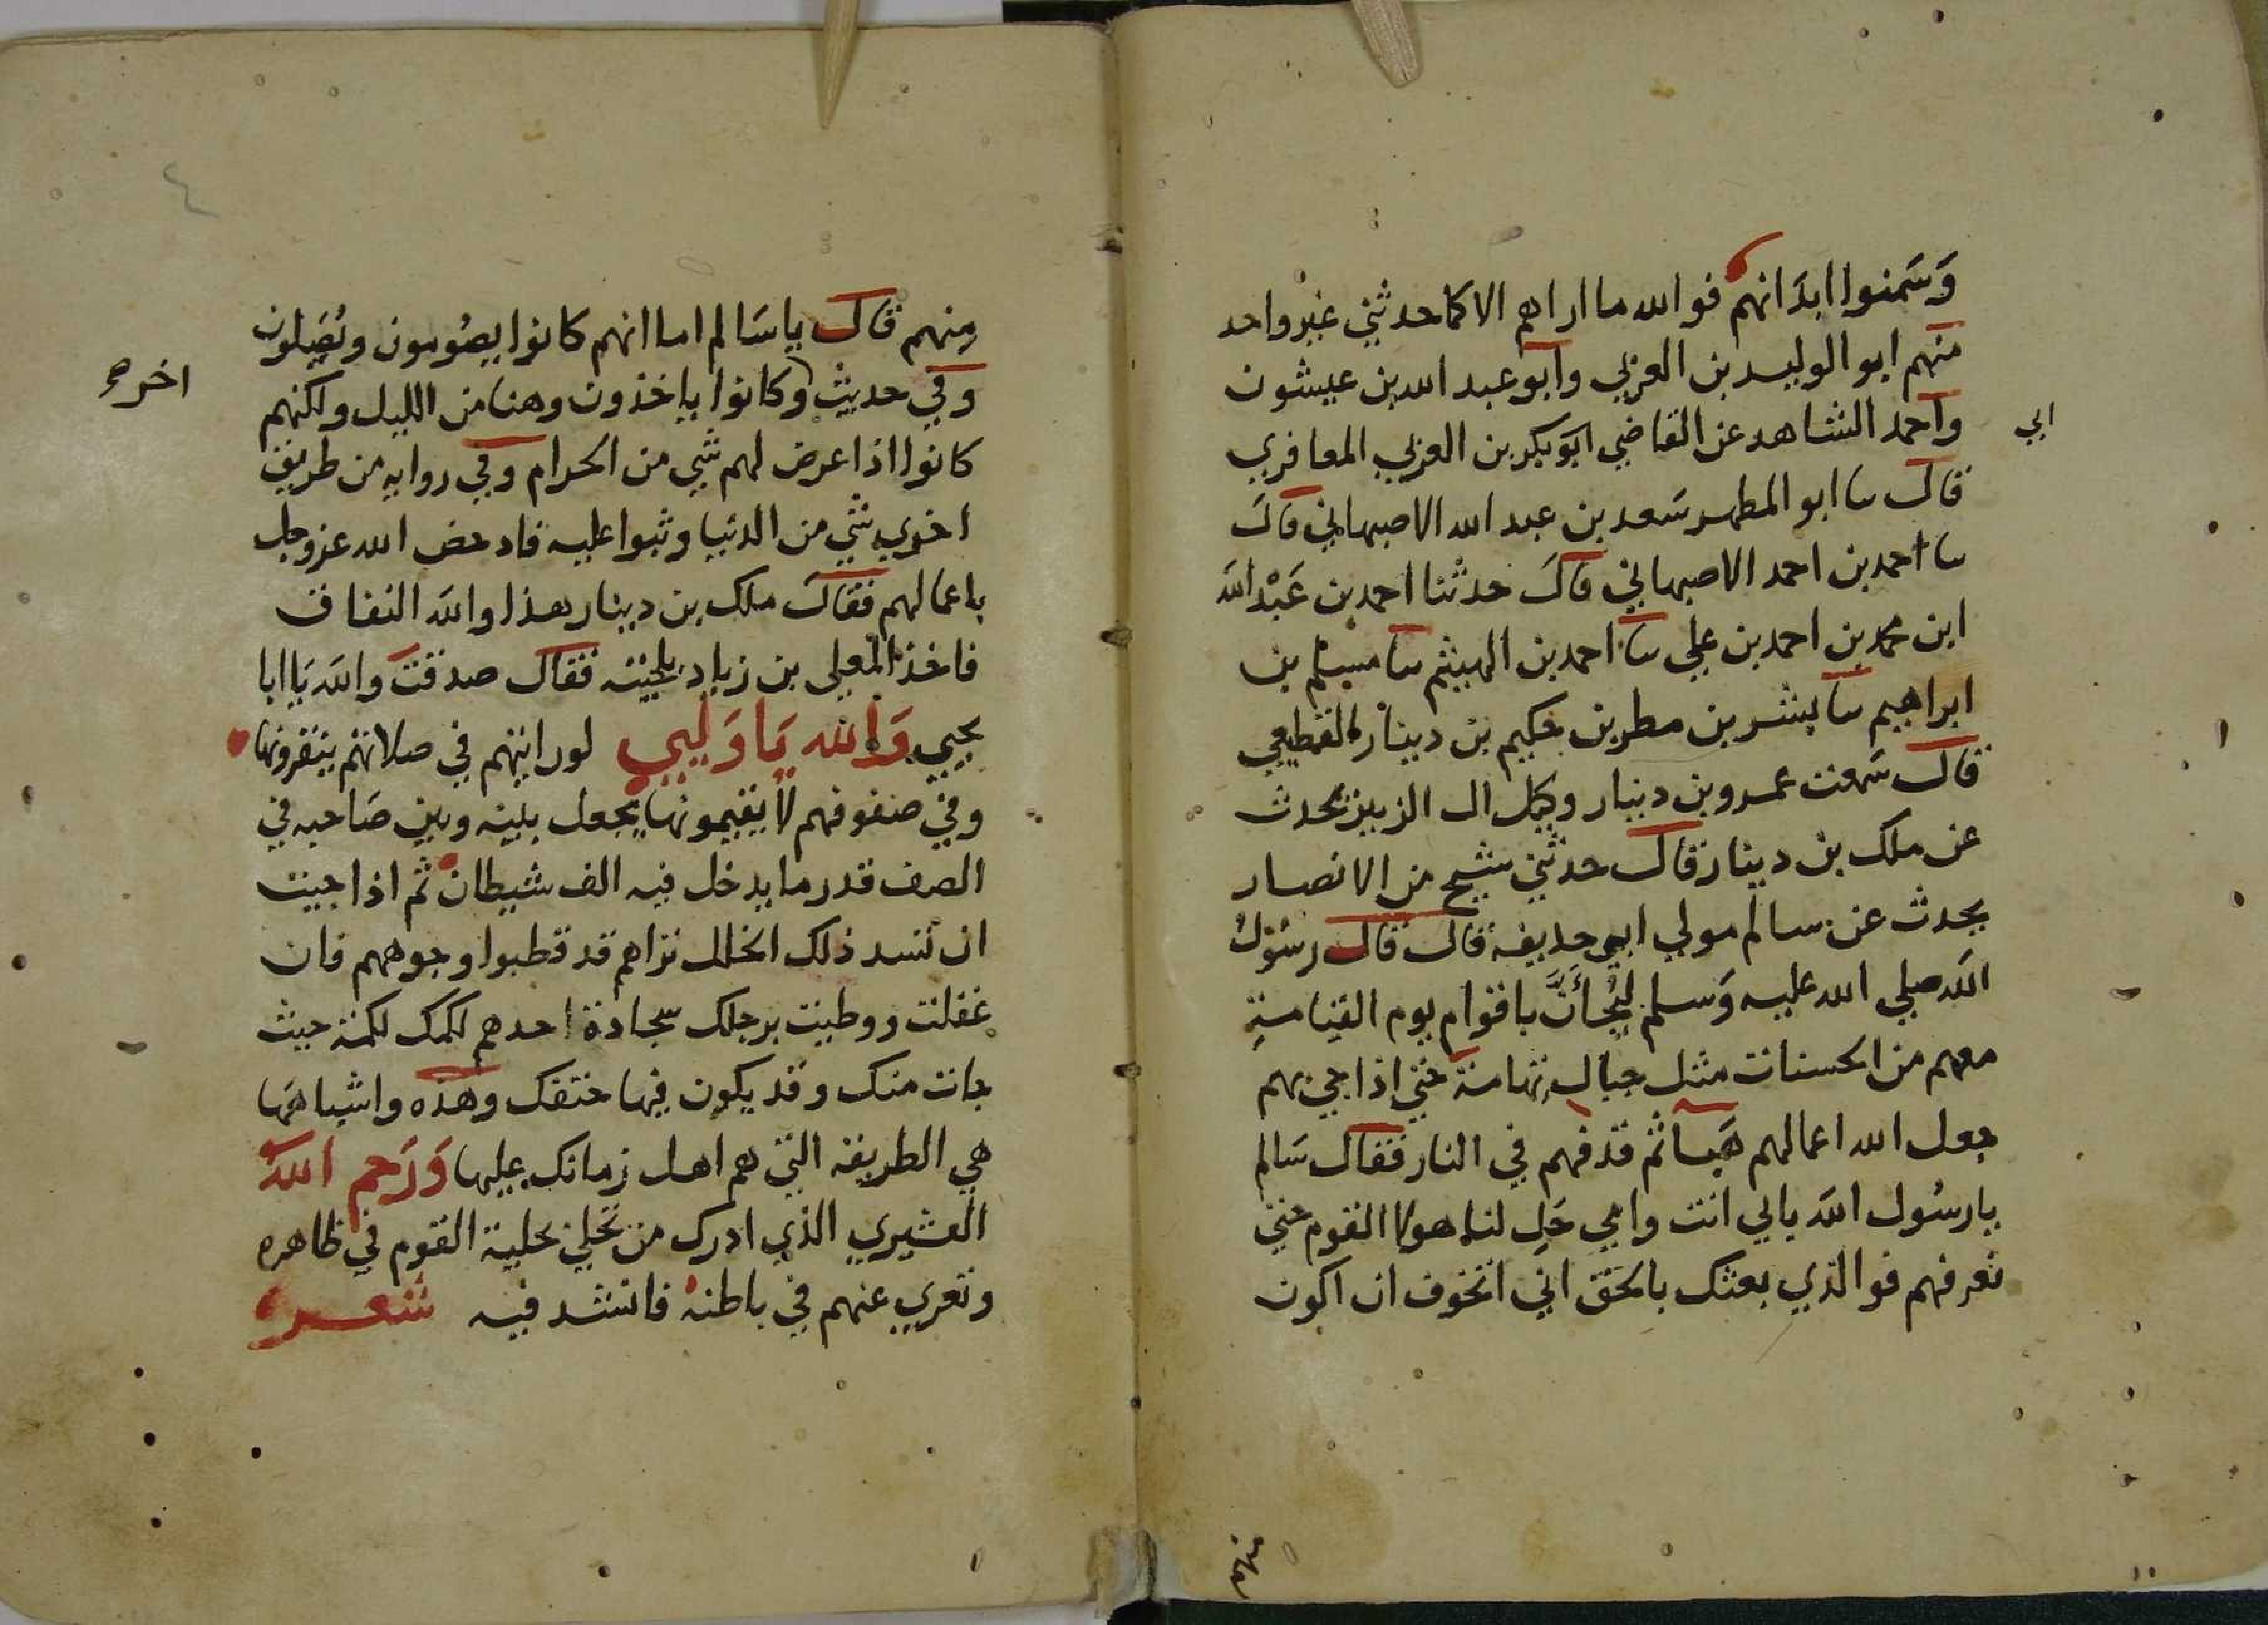 وَسَمنوا ابدَانهم فو الله ما اراهم الا كما حدثني غير واحد
منهم ابو الوليد بن العربي وابو عبد الله بن عيشون
واحمد الشاهد عن القاضي ابو بكر بن العربي المعافري
ابي
قال سا ابو المطهر سَعد بن عبد الله الاصبهاني قال
سا احمد بن احمد الاصبهاني قال حدثنا احمد بن عَبْد الله
ابن محمد بن احمد بن علي سا احمد بن الهيثم سا مسلم بن
ابراهيم سا بشر بن مطر بن حكيم بن دينار القطيعي
قال سَمعت عمرو بن دينار وكيل ال الزبير يحدث
عن ملك بن دينار قال حدثني شيخ من الانصار
يحدث عن سالم مولي ابي حديفه قال قال رسُول
الله صلي الله عليه وَسلم ليُجَانَّ باقوام يوم القيامة
معهم من الحسنات مثل جبال تهامة حتي اذا جي بهم
جعل الله اعمالهم هَبا ثم قذفهم في النار فقال سَالم
يا رسُول الله يابي انت وامي حَلِ لنا هولا القوم حتي
نعرفهم فو الذي بعثك بالحق اني اتخوف ان اكون
منهم
٤
مِنهم قال يا سَالم اما انهم كانوا يصُومون ويُصَلون
وفي حديث وكانوا ياخذون وهنا من الليل ولكنهم
اخره
كانوا اذا عرض لهم شي من الحرام وفي روايه من طريق
اخري شي من الدنيا وثبوا عليه فادحض الله عز وجل
باعمالهم فقال ملك بن دينار هذا والله النفاق
فاخذ المعلي بن زياد بلحيته فقال صدقت والله يَا ابا
يحيي وَالله يَا وَليي لو رايتهم في صلاتهم ينقرونها
وفي صفوفهم لا يقيمونها يجعل بينه وبين صَاحبه في
الصف قدر ما يدخل فيه الف شيطان ثم اذا جيت
ان تسد ذلك الخلل تراهم قد قطبوا وجوههم فان
غفلت ووطيت برجلك سجادة احدهم لكمك لكمة حيث
جات منك وقد يكون فيها حتفك وهذه واشباهَها
هي الطريقه التي هم اهل زمانك عليها وَرَحم الله
القشيري الذي ادرك من تحلي بحلية القوم في ظاهره
وتعري عنهم في باطنه فانشد فيه شعر